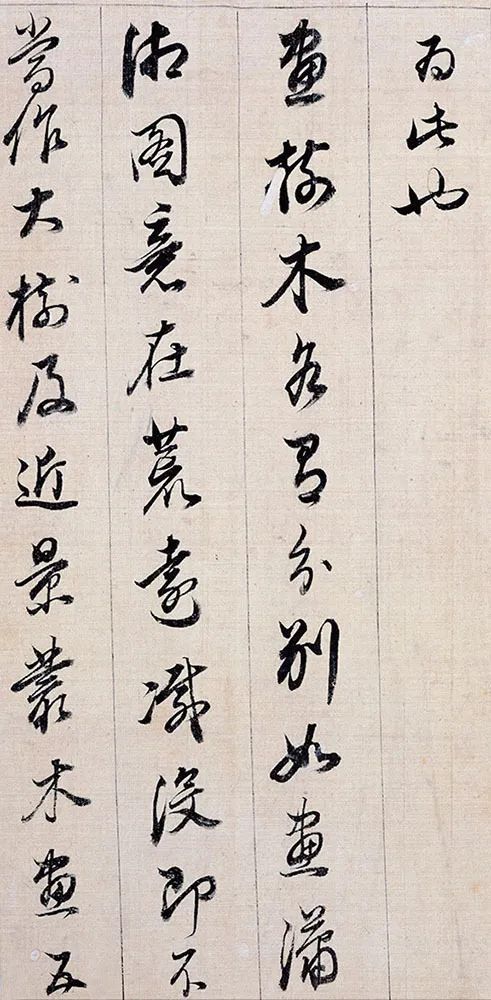 為此也
畫樹木各有分別如畫瀟
湘圖意在荒遠滅沒即不
當作大樹及近景叢木畫五